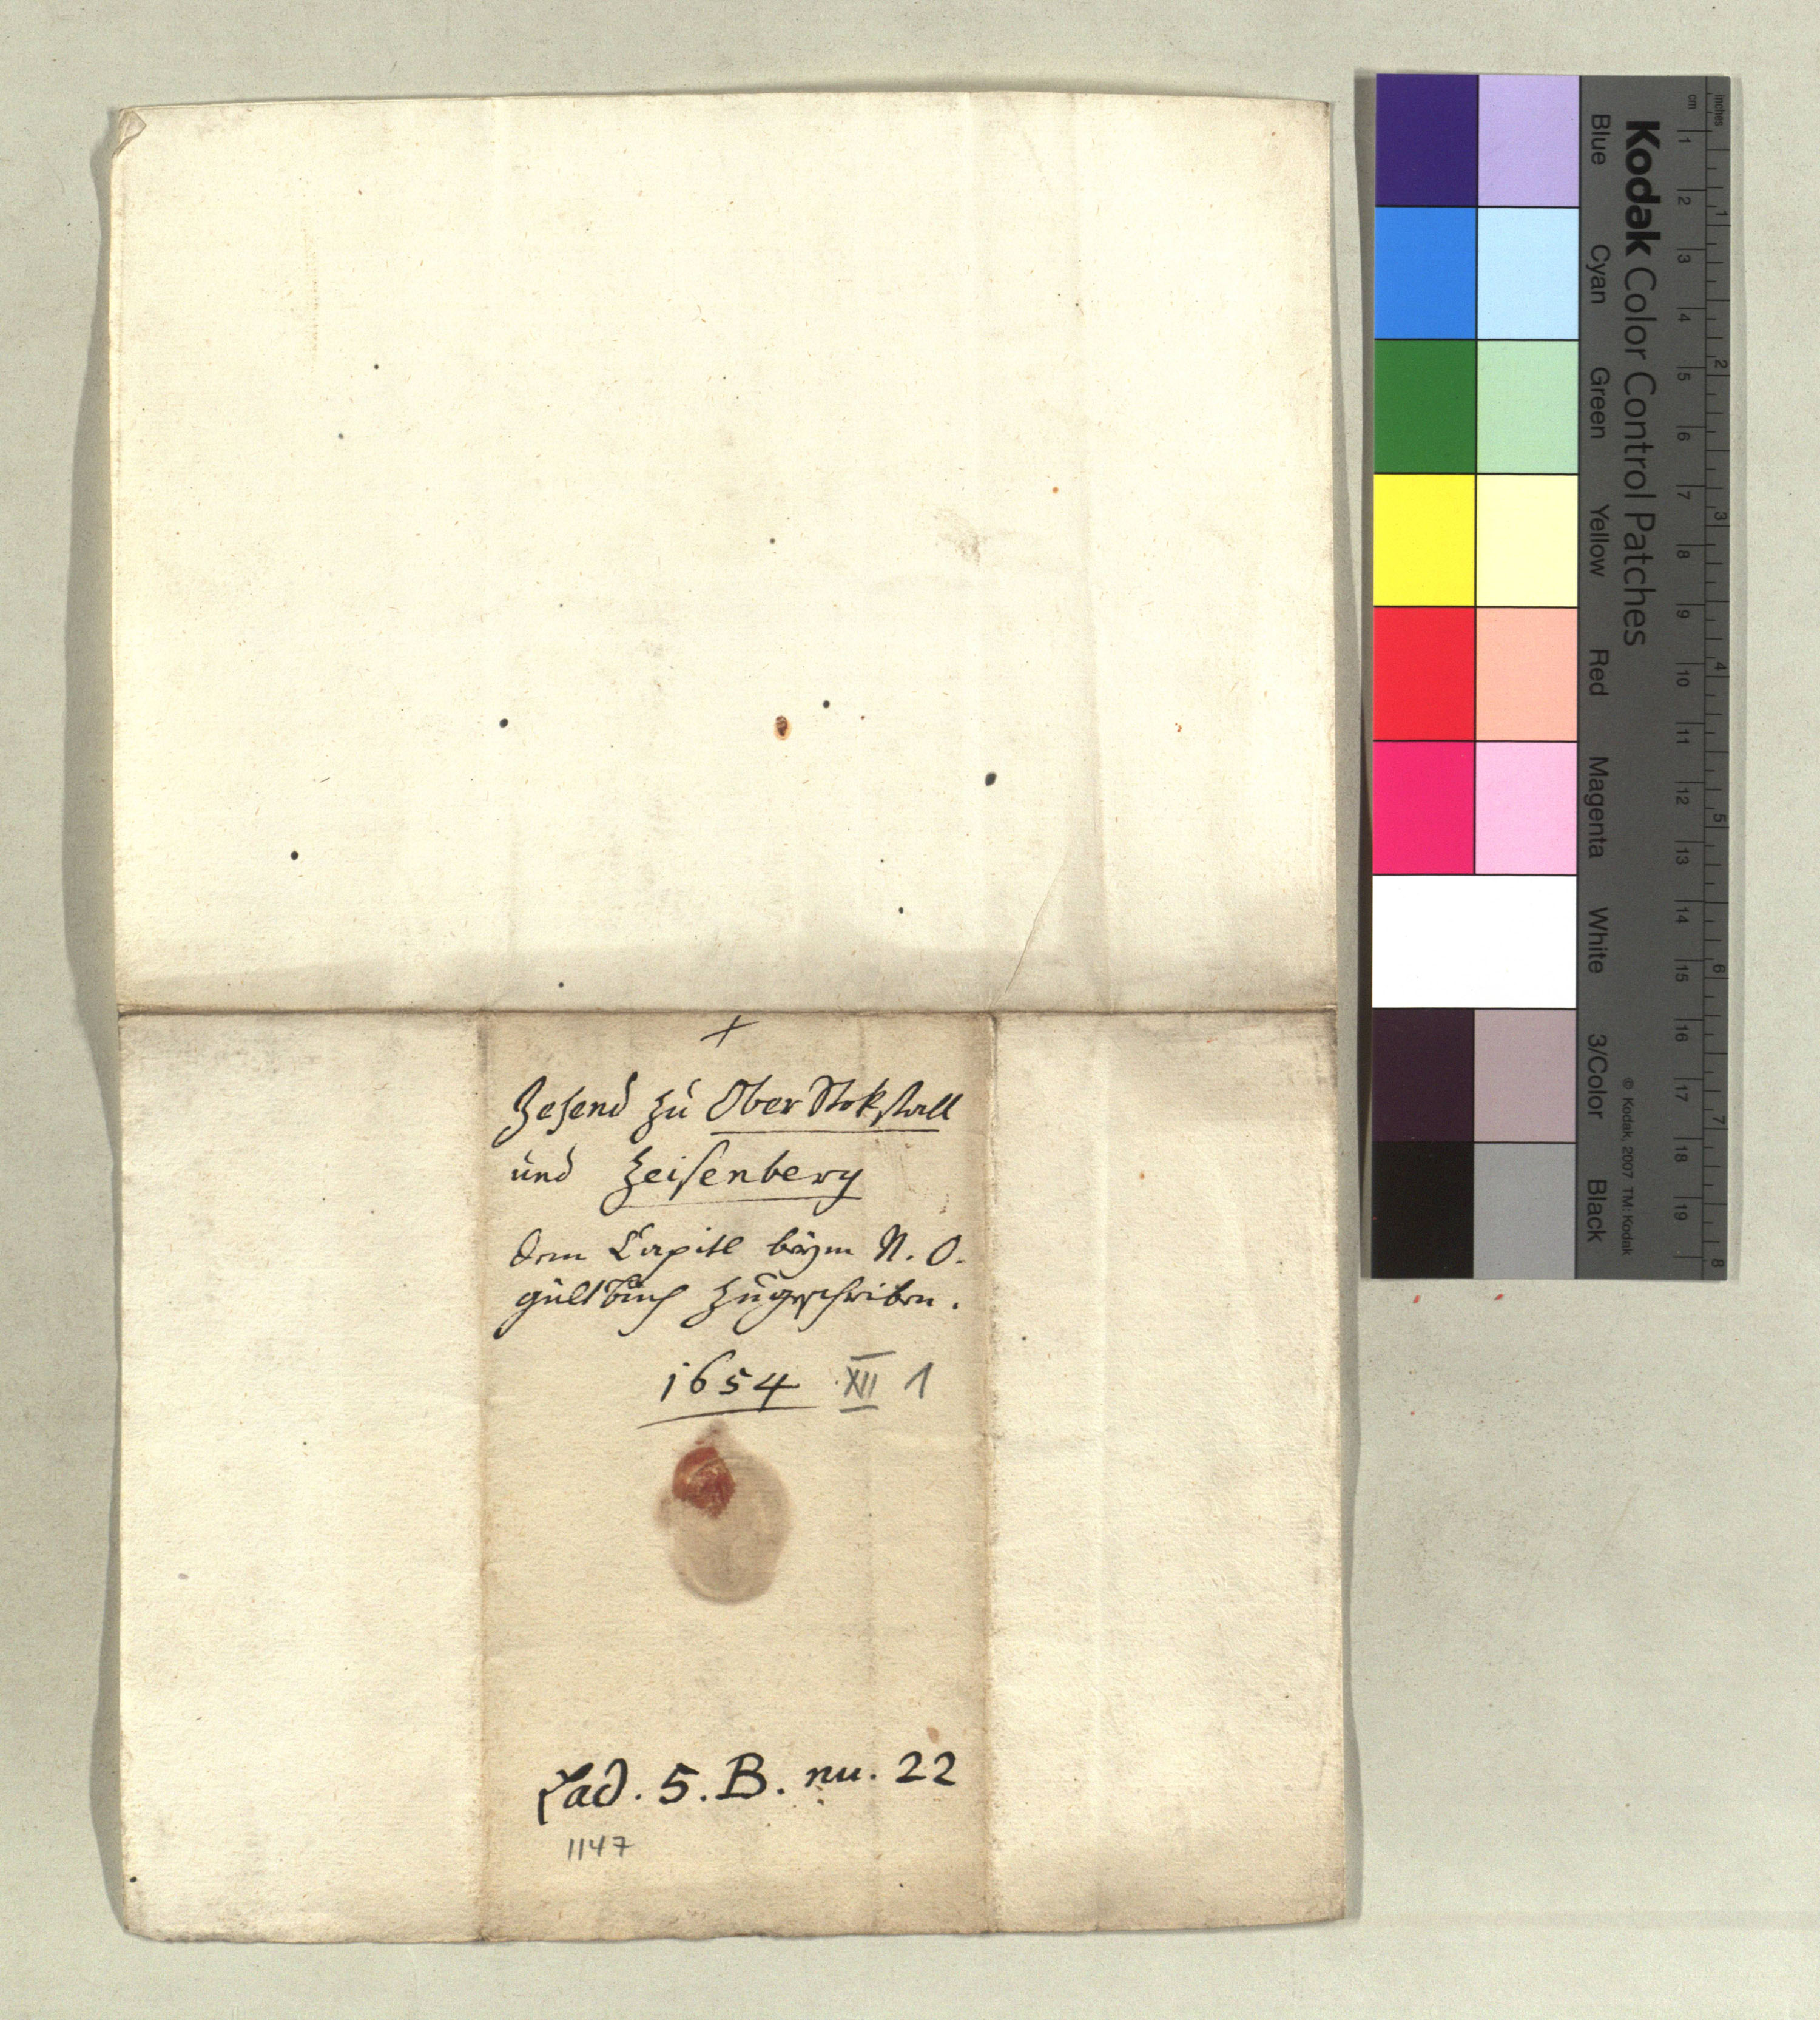 +
Zehend zu Ober Stokstall
und Zeisenberg
dem Capitl beym N. O.
gültbuch zugeschriben.
1654 XII 1
Lad. 5. B. nu. 22
1147
Kodak Color Control Patches
Blue Cyan Green Yellow Red Magenta White 3/Color Black
© Kodak, 2007 TM: Kodak
cm 1 2 3 4 5 6 7 8 9 10 11 12 13 14 15 16 17 18 19
inches 1 2 3 4 5 6 7 8